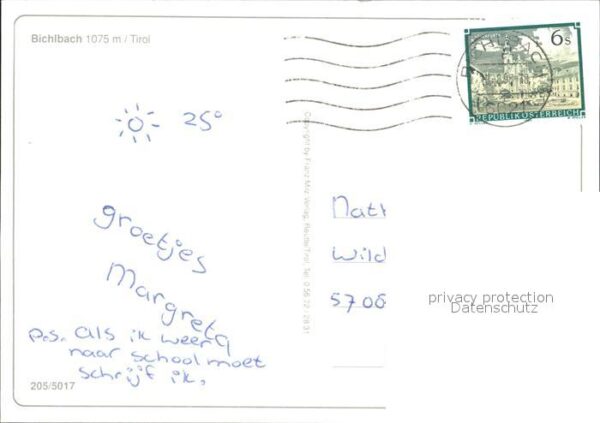 Bichlbach 1075 m / Tirol
6s
REPUBLIK ÖSTERREICH
25°
groetjes
Margreta
p.s. als ik weer
naar school moet
schrijf ik.
Copyright by Franz Milz Verlag, Reutte/Tirol, Tel. 0 56 72 / 28 31
Natt
Wild
5708
privacy protection
Datenschutz
205/5017